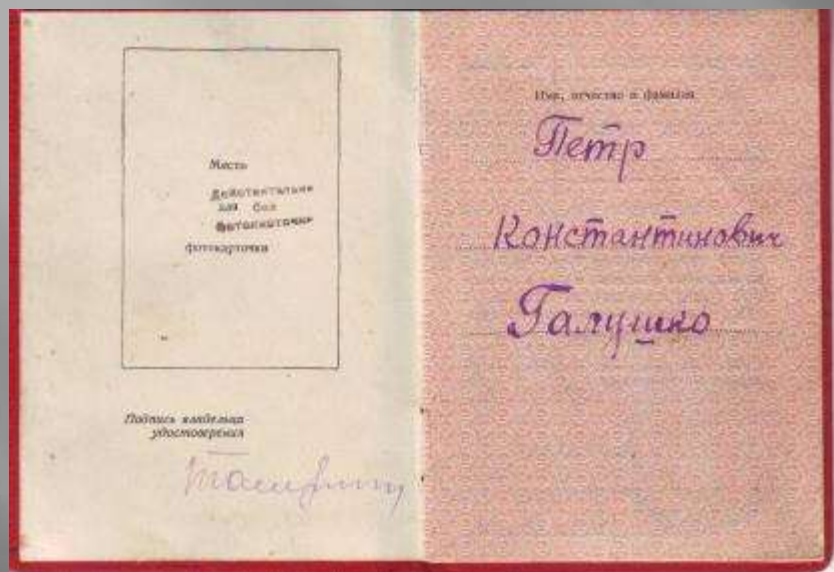 Место
Действительно
без
фотокарточки
фотокарточки
Подпись владельца
удостоверения
Имя, отчество и фамилия
Петр
Константинович
Галушко